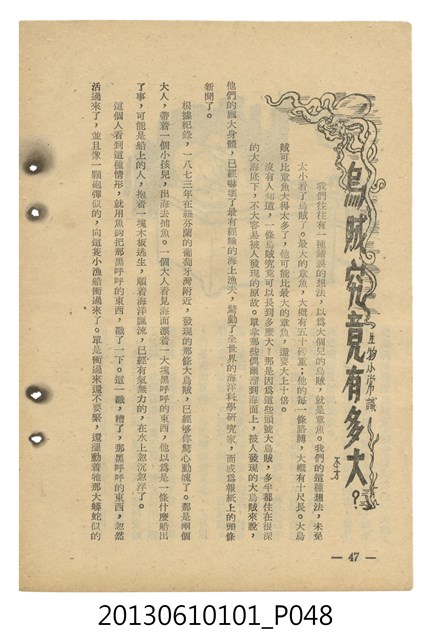 烏賊究竟有多大？
生物小常識
不才
我們往往有一種錯誤的想法，以為大個兒的烏賊，就是章魚。我們的這種想法，未免
太小看了烏賊了。最大的章魚，大概有五十磅重；他的每一條胳膊，大概有十尺長。大烏
賊可比章魚大得太多了，他可能比最大的章魚，還要大上十倍。
沒有人知道，一條烏賊究竟可以長到多麼大？那是因為這些頭號大烏賊，多半都住在很深
的大海底下，不大容易被人發現的原故。單拿那些偶爾溜到海面上，被人發現的大烏賊來說，
他們的龐大身體，已經嚇壞了最有經驗的海上漁夫，驚動了全世界的海洋科學研究家，而成為報紙上的頭條
新聞了。
根據紀錄，一八七三年在紐芬蘭的葡萄牙灣附近，發現的那條大烏賊，已經够你驚心動魄了。那是兩個
大人，帶着一個小孩兒，出海去捕魚。一個大人看見海面漂着一大塊黑呼呼的東西，他以為是一條什麼船出
了事，可能是船上的人，抱着一塊木板逃生，順着海洋飄流，已經有氣無力的，在水上忽沉忽浮了。
這個人看到這種情形，就用魚鈎把那黑呼呼的東西，戳了一下。這一戳，糟了，那黑呼呼的東西，忽然
活過來了，並且像一顆砲彈似的，向這條小漁船衝過來了。單是衝過來還不要緊，還運動着牠那大蟒蛇似的
— 47 —
20130610101_P048